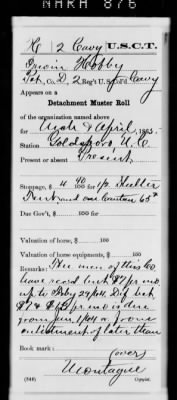 NARA 876
H | 2 Cavy | U.S.C.T.
Irwin Hobby
Pvt, Co. D, 2 Reg't U.S. Col'd Cavy
Appears on a
Detachment Muster Roll
of the organization named above
for & April, 1865.
Station Goldsboro N.C.
Present or absent Present
Stoppage, $ 4 40/100 for ½ Shelter
Tent and one Canteen 65 cts
Due Gov't, $ 100 for
Valuation of horse, $ 100
Valuation of horse equipments, $ 100
Remarks: The men of this Co
have recd but $7 pr mo
up to Feby 29/64. Dif bet
$7 & pr mo is due
from Jany 1/64 or from
enlistment if later than
Book mark:
(over)
Montague
(346) Copyist.